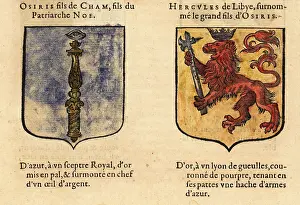 OSIRIS fils de CHAM, fils du
Patriarche NOE.
HERCVLES de Libye, surnom-
mé le grand fils d'OSIRIS.
D'azur, à vn sceptre Royal, d'or
mis en pal, & surmonté en chef
d'vn œil d'argent.
D'or, à vn lyon de gueulles, cou-
ronné de pourpre, tenant en
ses pattes vne hache d'armes
d'azur.